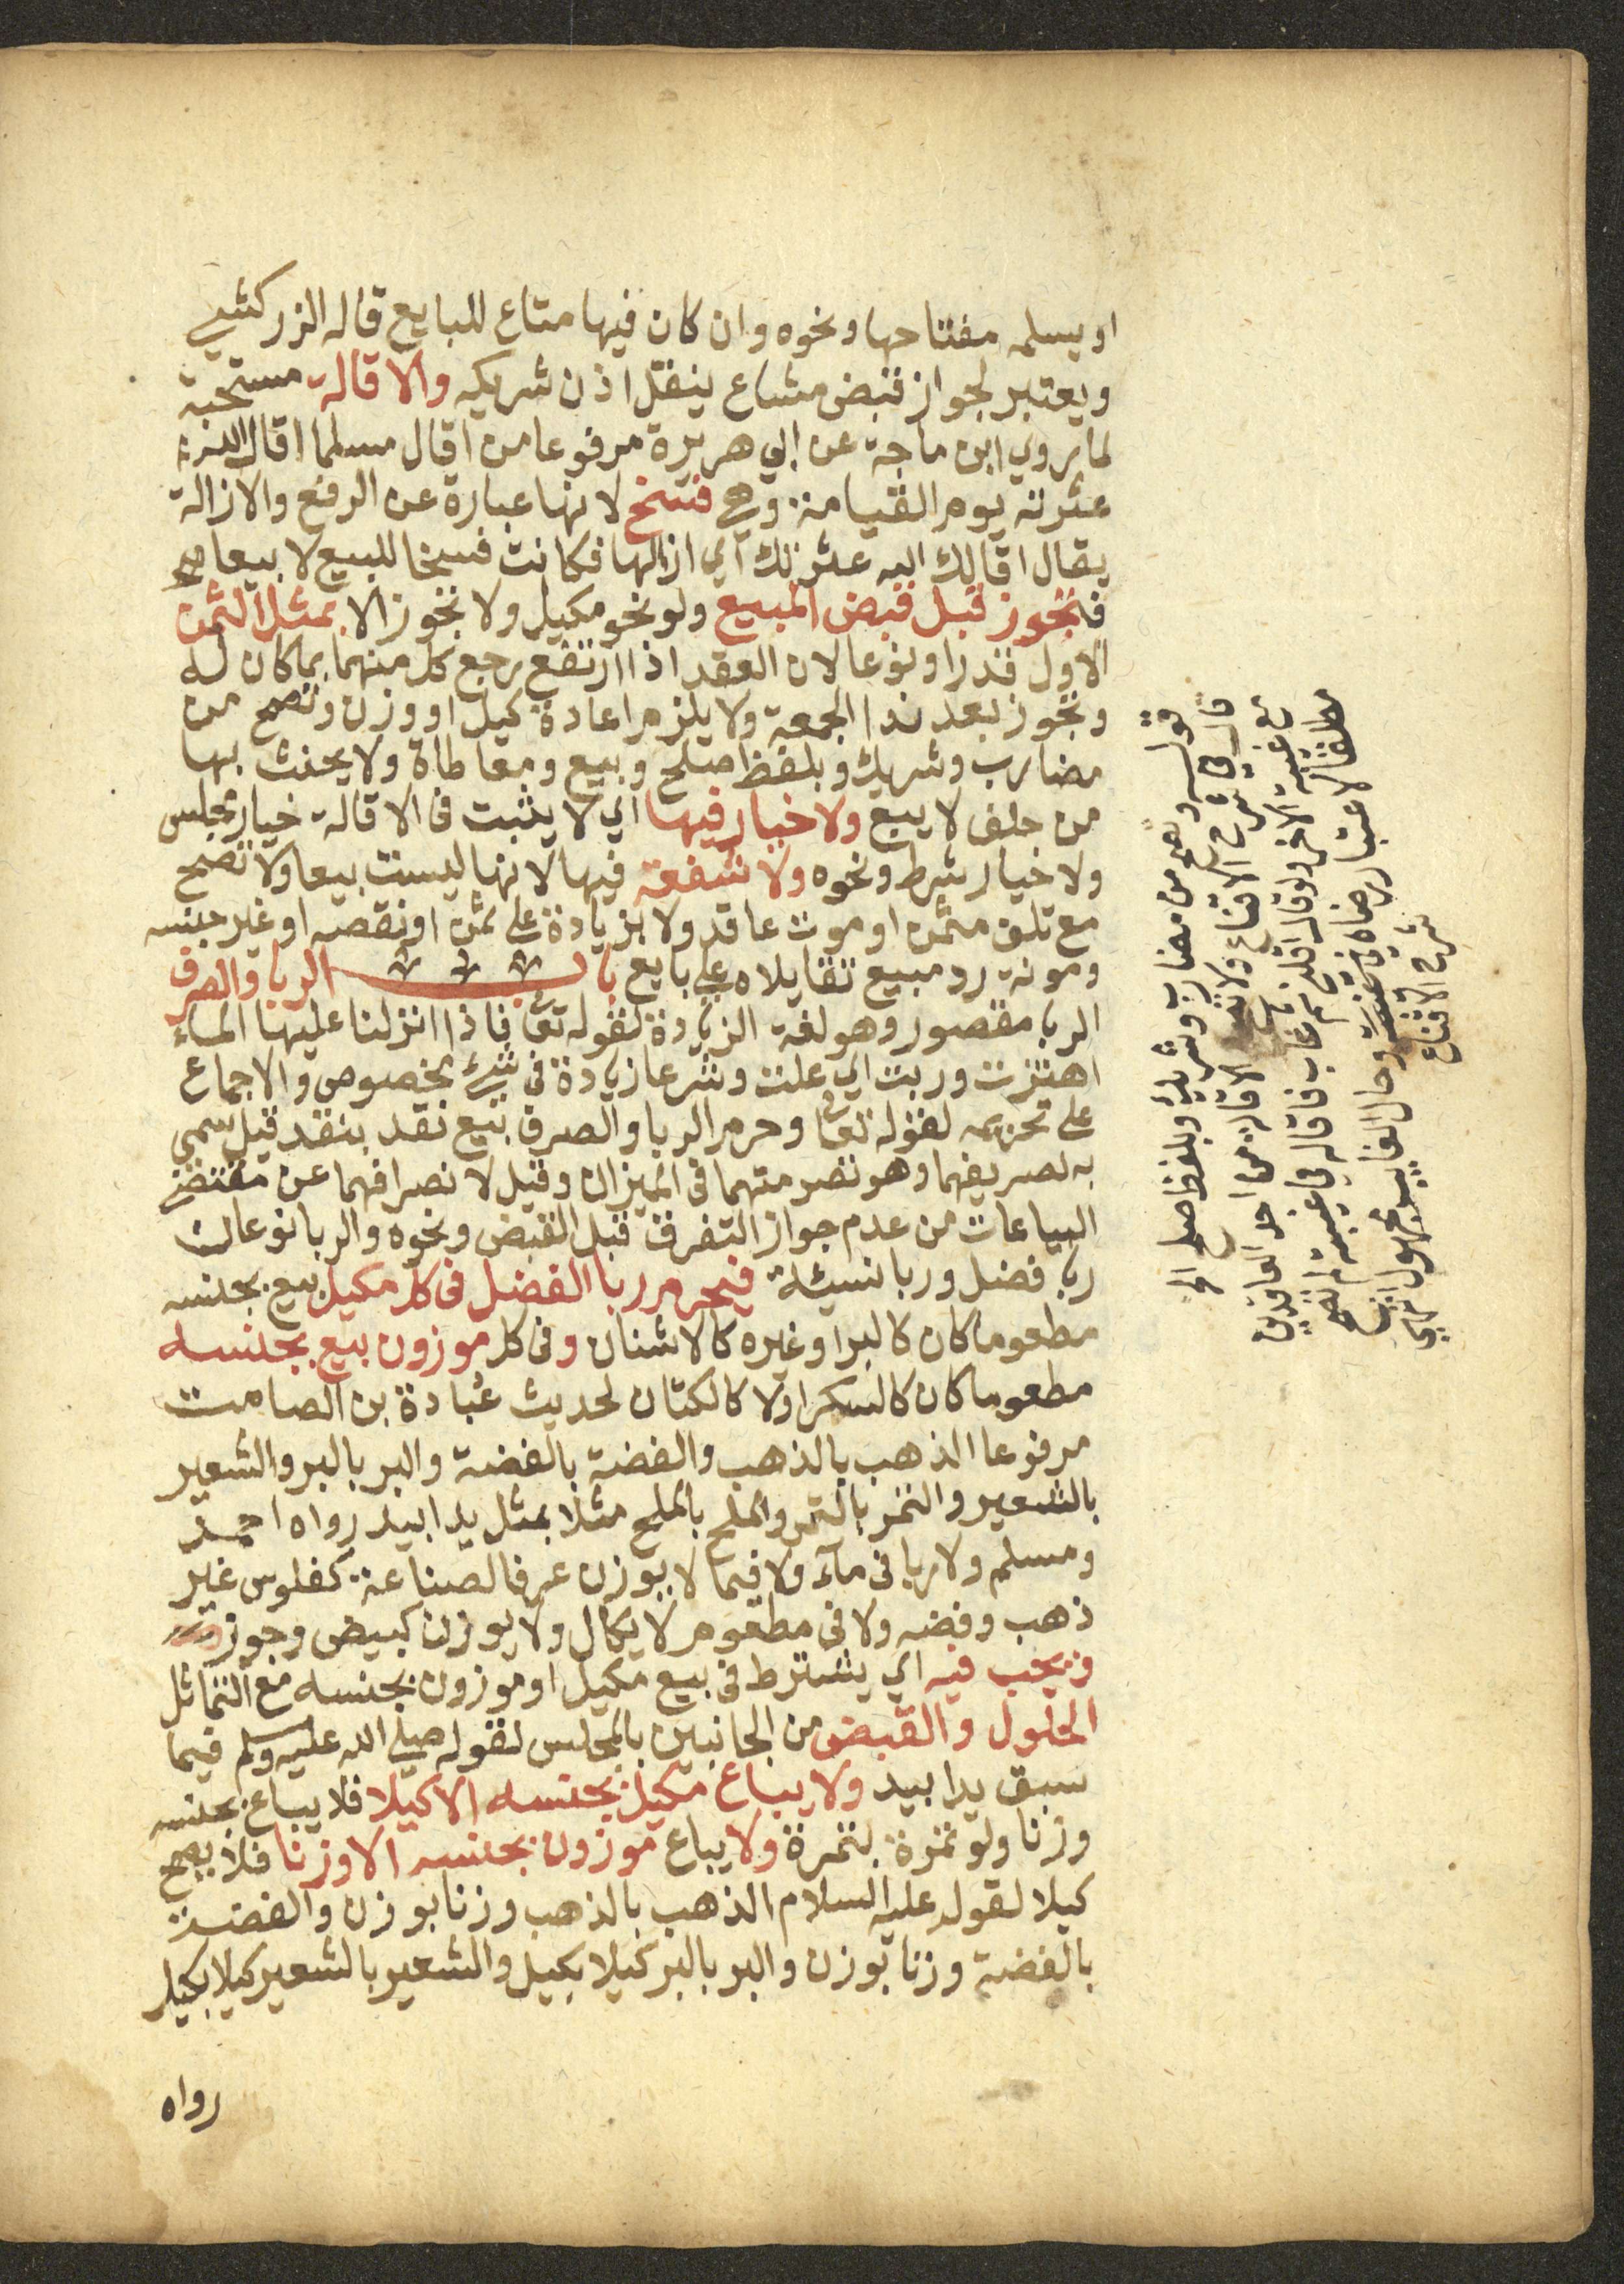 او يسلمه مفتاحها ونحوه وان كان فيها متاع للبايع قاله الزركشي
ويعتبر لجواز قبض مشاع ينقل اذن شريكه والاقالة مستحبة
لما يروي ابن ماجة عن ابي هريرة مرفوعا من اقال مسلما اقال الله
عثرته يوم القيامة وهي فسخ لانها عبارة عن الرفع والازالة
يقال اقالك الله عثرتك اي ازالها فكانت فسخا للبيع لا بيعا
فتجوز قبل قبض المبيع ولو نحو مكيل ولا تجوز الا بمثل الثمن
الاول قدرا ونوعا لان العقد اذا ارتفع رجع كل منهما بما كان له
وتجوز بعد ندا الجمعة ولا يلزم اعادة كيل او وزن وتصح من
مضارب وشريك وبلفظ صلح وبيع ومعاطاة ولا يحنث بها
من حلف لا يبيع ولا خيار فيها اي لا يثبت فى الاقالة خيار مجلس
ولا خيار شرط ونحوه ولا شفعة فيها لانها ليست بيعا ولا تصح
مع تلف مثمن او موت عاقد ولا بزيادة على ثمن او نقصه او غير جنسه
ومونة رد مبيع تقايلاه علي بايع باب الربا والصرف
الربا مقصور وهو لغة الزيادة لقوله تعا فاذا انزلنا عليها الماء
اهتزت وربت اي علت وشرعا زيادة فى شئ مخصوص والاجماع
على تحريمه لقوله تعا وحرم الربا والصرف بيع نقد بنقد قيل سمي
به لصريفهما وهو تصويتهما فى الميزان وقيل لانصرافهما عن مقتضى
البياعات من عدم جواز التفرق قبل القبض ونحوه والربا نوعان
ربا فضل وربا نسيئة فيحرم ربا الفضل فى كل مكيل بيع بجنسه
مطعوما كان كالبر او غيره كالاشنان وفى كل موزون بيع بجنسه
مطعوما كان كالسكر اولا كالكتان لحديث عُبادة بن الصامت
مرفوعا الذهب بالذهب والفضة بالفضة والبر بالبر والشعير
بالشعير والتمر بالتمر والملح بالملح مثلا بمثل يدا بيد رواه احمد
ومسلم ولا ربا فى مآء ولا فيما لا يوزن عرفا لصناعة كفلوس غير
ذهب وفضه ولا فى مطعوم لا يكال ولا يوزن كبيض وجوز
ويجب فيه اي يشترط فى بيع مكيل او موزون بجنسه مع التماثل
الحلول والقبض من الجانبين بالمجلس لقوله صلى الله عليه وسلم فيما
سبق يدا بيد ولا يباع مكيل بجنسه الا كيلا فلا يباع بجنسه
وزنا ولو تمرة بتمرة ولا يباع موزون بجنسه الا وزنا فلا يصح
كيلا لقوله عليه السلام الذهب بالذهب وزنا بوزن والفضة
بالفضة وزنا بوزن والبر بالبر كيلا بكيل والشعير بالشعير كيلا بكيل
رواه
قوله وتصح من مضارب وشريك وبلفظ صلح الخ
قال في شرح الاقناع ولا تصح الاقالة من احد العاقدين
مع غيبة الاخر ولو قال اقلني ثم غاب فاقاله في غيبته لم تصح
مطلقا لاعتبار رضاه في غيبته وحال الغايب مجهول انتهي
شرح الاقناع